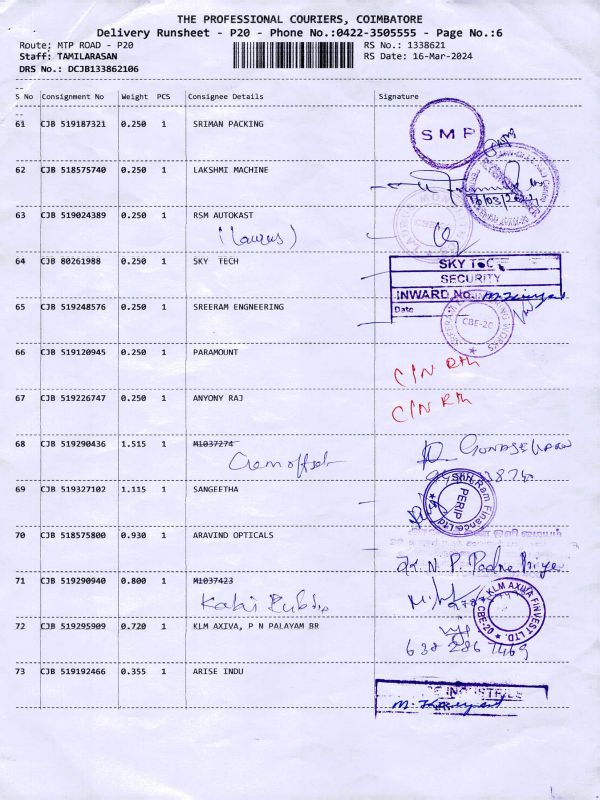 THE PROFESSIONAL COURIERS, COIMBATORE
Delivery Runsheet - P20 - Phone No.:0422-3505555 - Page No.:6
Route: MTP ROAD - P20
RS No.: 1338621
Staff: TAMILARASAN
RS Date: 16-Mar-2024
DRS No.: DCJB133862106
S No Consignment No Weight PCS Consignee Details Signature
61 CJB 519187321 0.250 1 SRIMAN PACKING
SMP
62 CJB 518575740 0.250 1 LAKSHMI MACHINE
63 CJB 519024389 0.250 1 RSM AUTOKAST
64 CJB 80261988 0.250 1 SKY TECH
SKY TEC
SECURITY
INWARD NO.
Date
65 CJB 519248576 0.250 1 SREERAM ENGNEERING
CBE-20
66 CJB 519120945 0.250 1 PARAMOUNT
67 CJB 519226747 0.250 1 ANYONY RAJ
68 CJB 519290436 1.515 1 M1037274
69 CJB 519327102 1.115 1 SANGEETHA
PERIP
70 CJB 518575800 0.930 1 ARAVIND OPTICALS
71 CJB 519290940 0.800 1 M1037423
72 CJB 519295909 0.720 1 KLM AXIVA, P N PALAYAM BR
KLM AXIVA FINVEST LTD.
CBE-20
73 CJB 519192466 0.355 1 ARISE INDU
INDUSTRIES